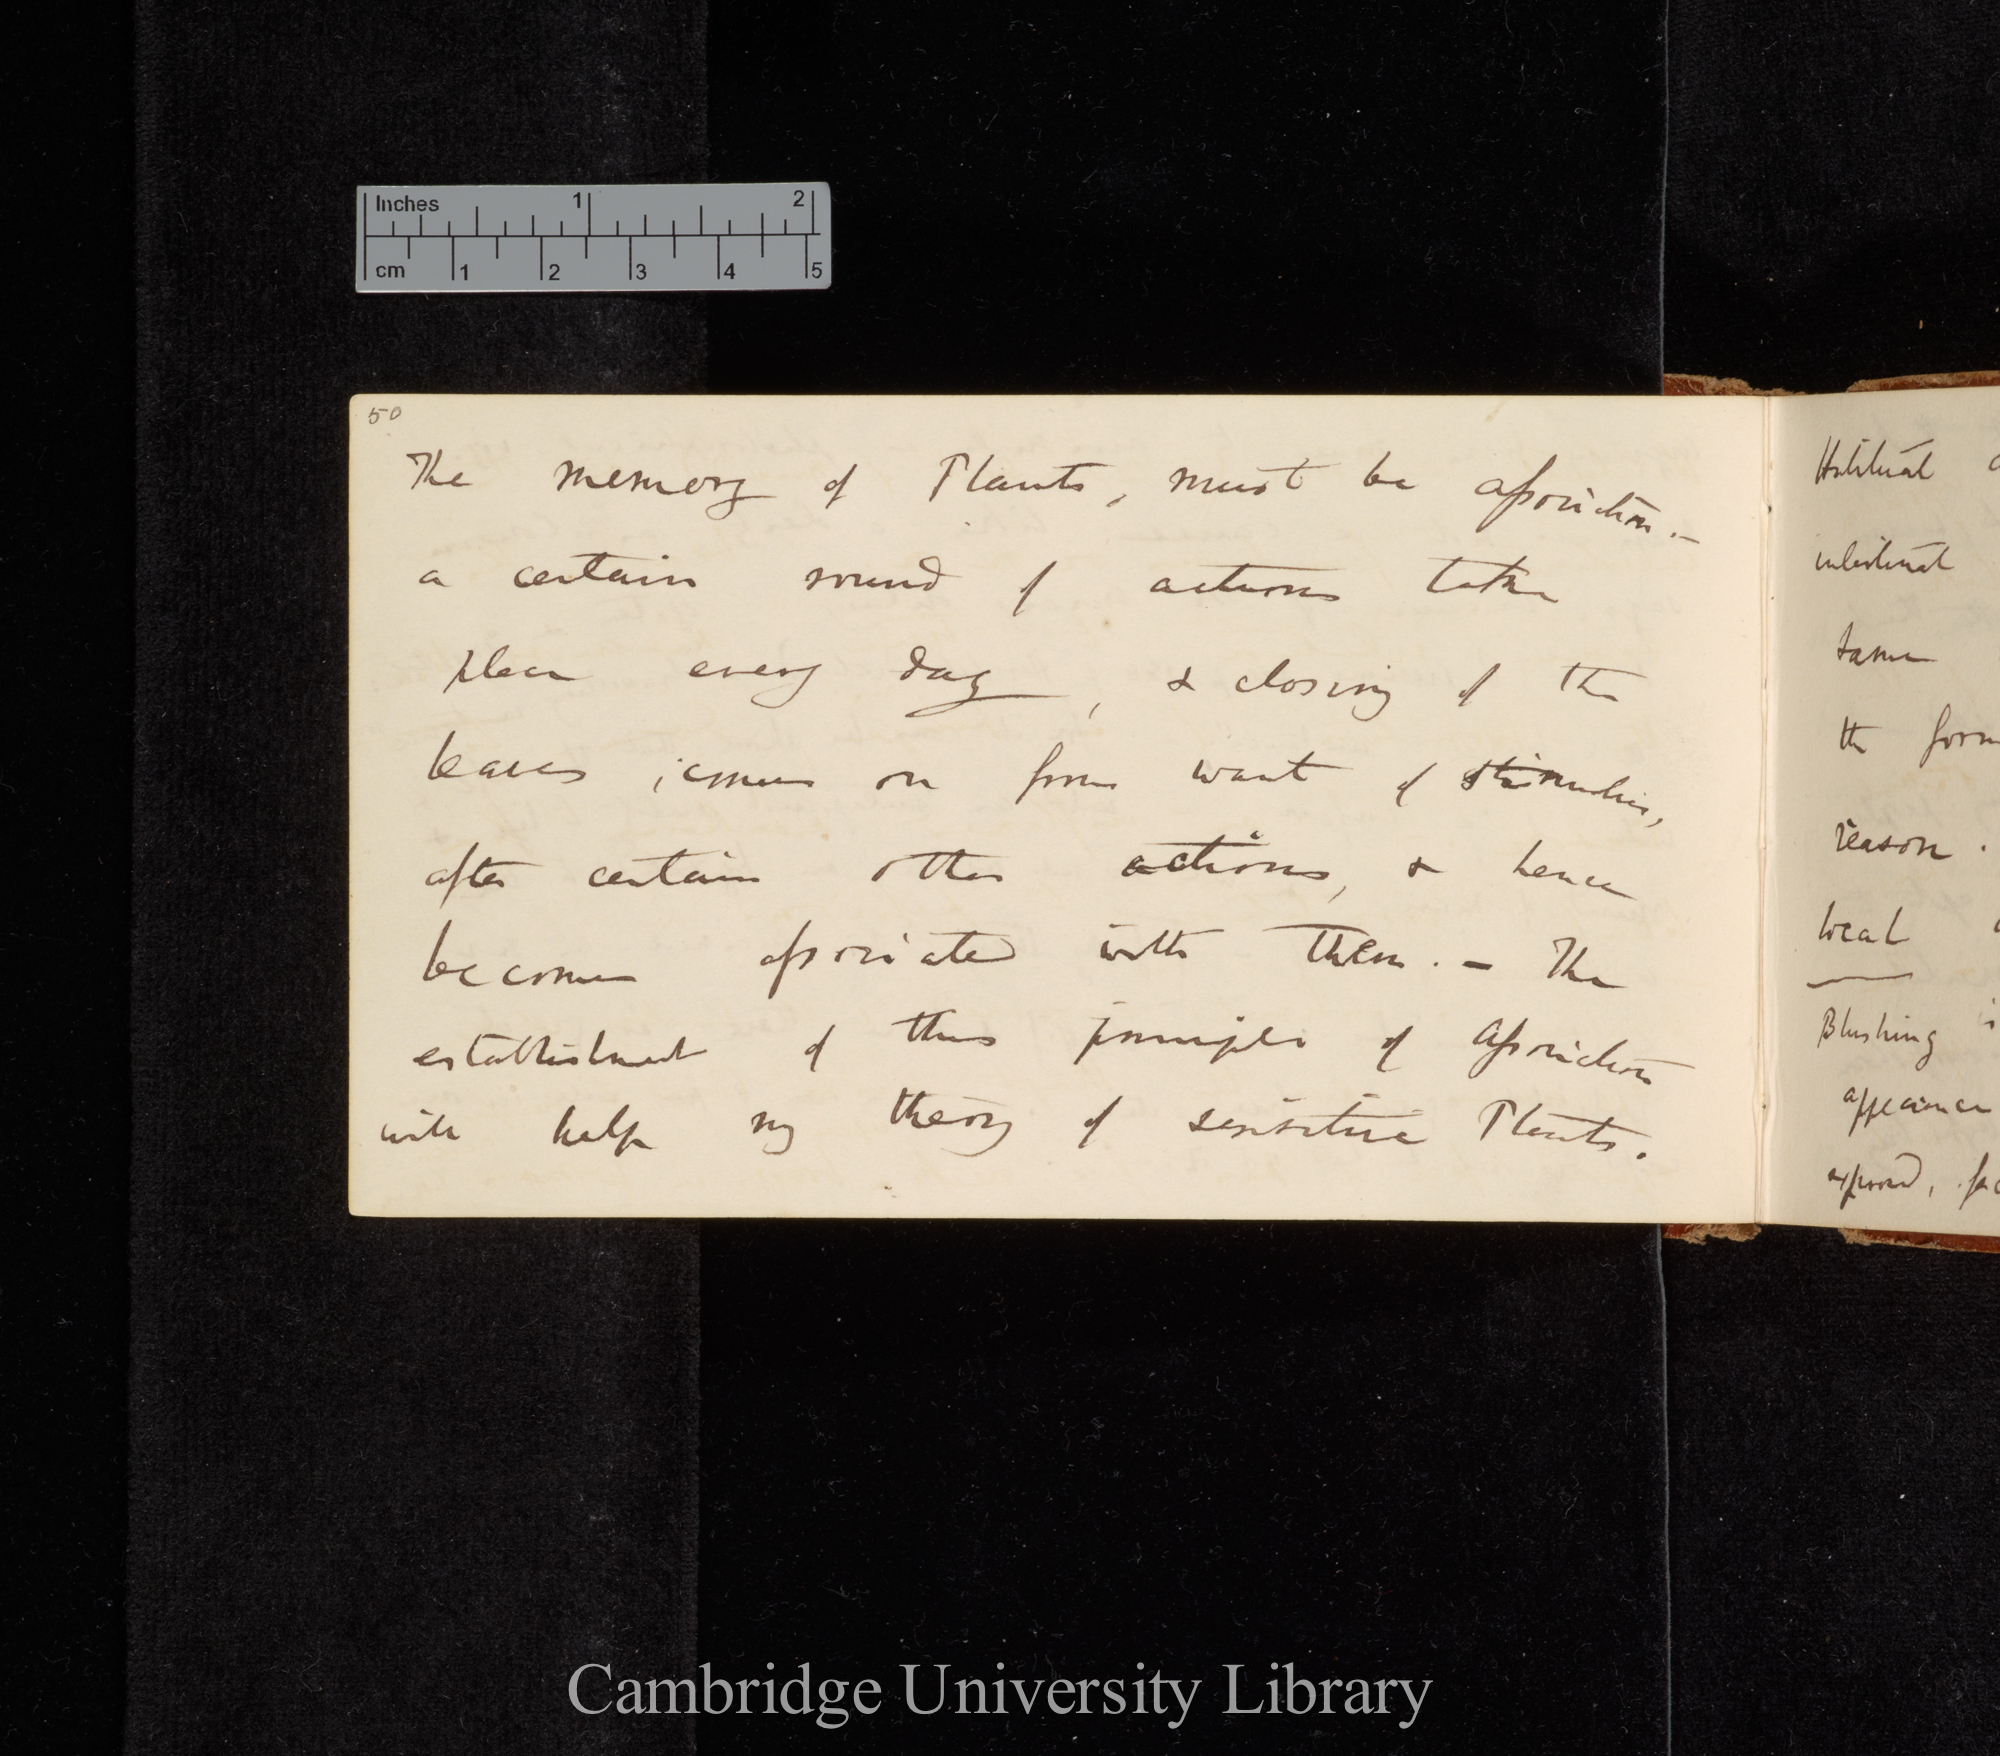 Inches 1 2
cm 1 2 3 4 5
50
The memory of Plants, must be association.—
a certain round of actions take
place every day, & closing of the
leaves, comes on from want of stimulus,
after certain other actions, & hence
becomes associated with them. — The
establishment of this principle of association
will help my theory of sensitive Plants.
Habitual
intestinal
same
the form
reason.
local
Blushing i
appearance
exposed, fac
Cambridge University Library